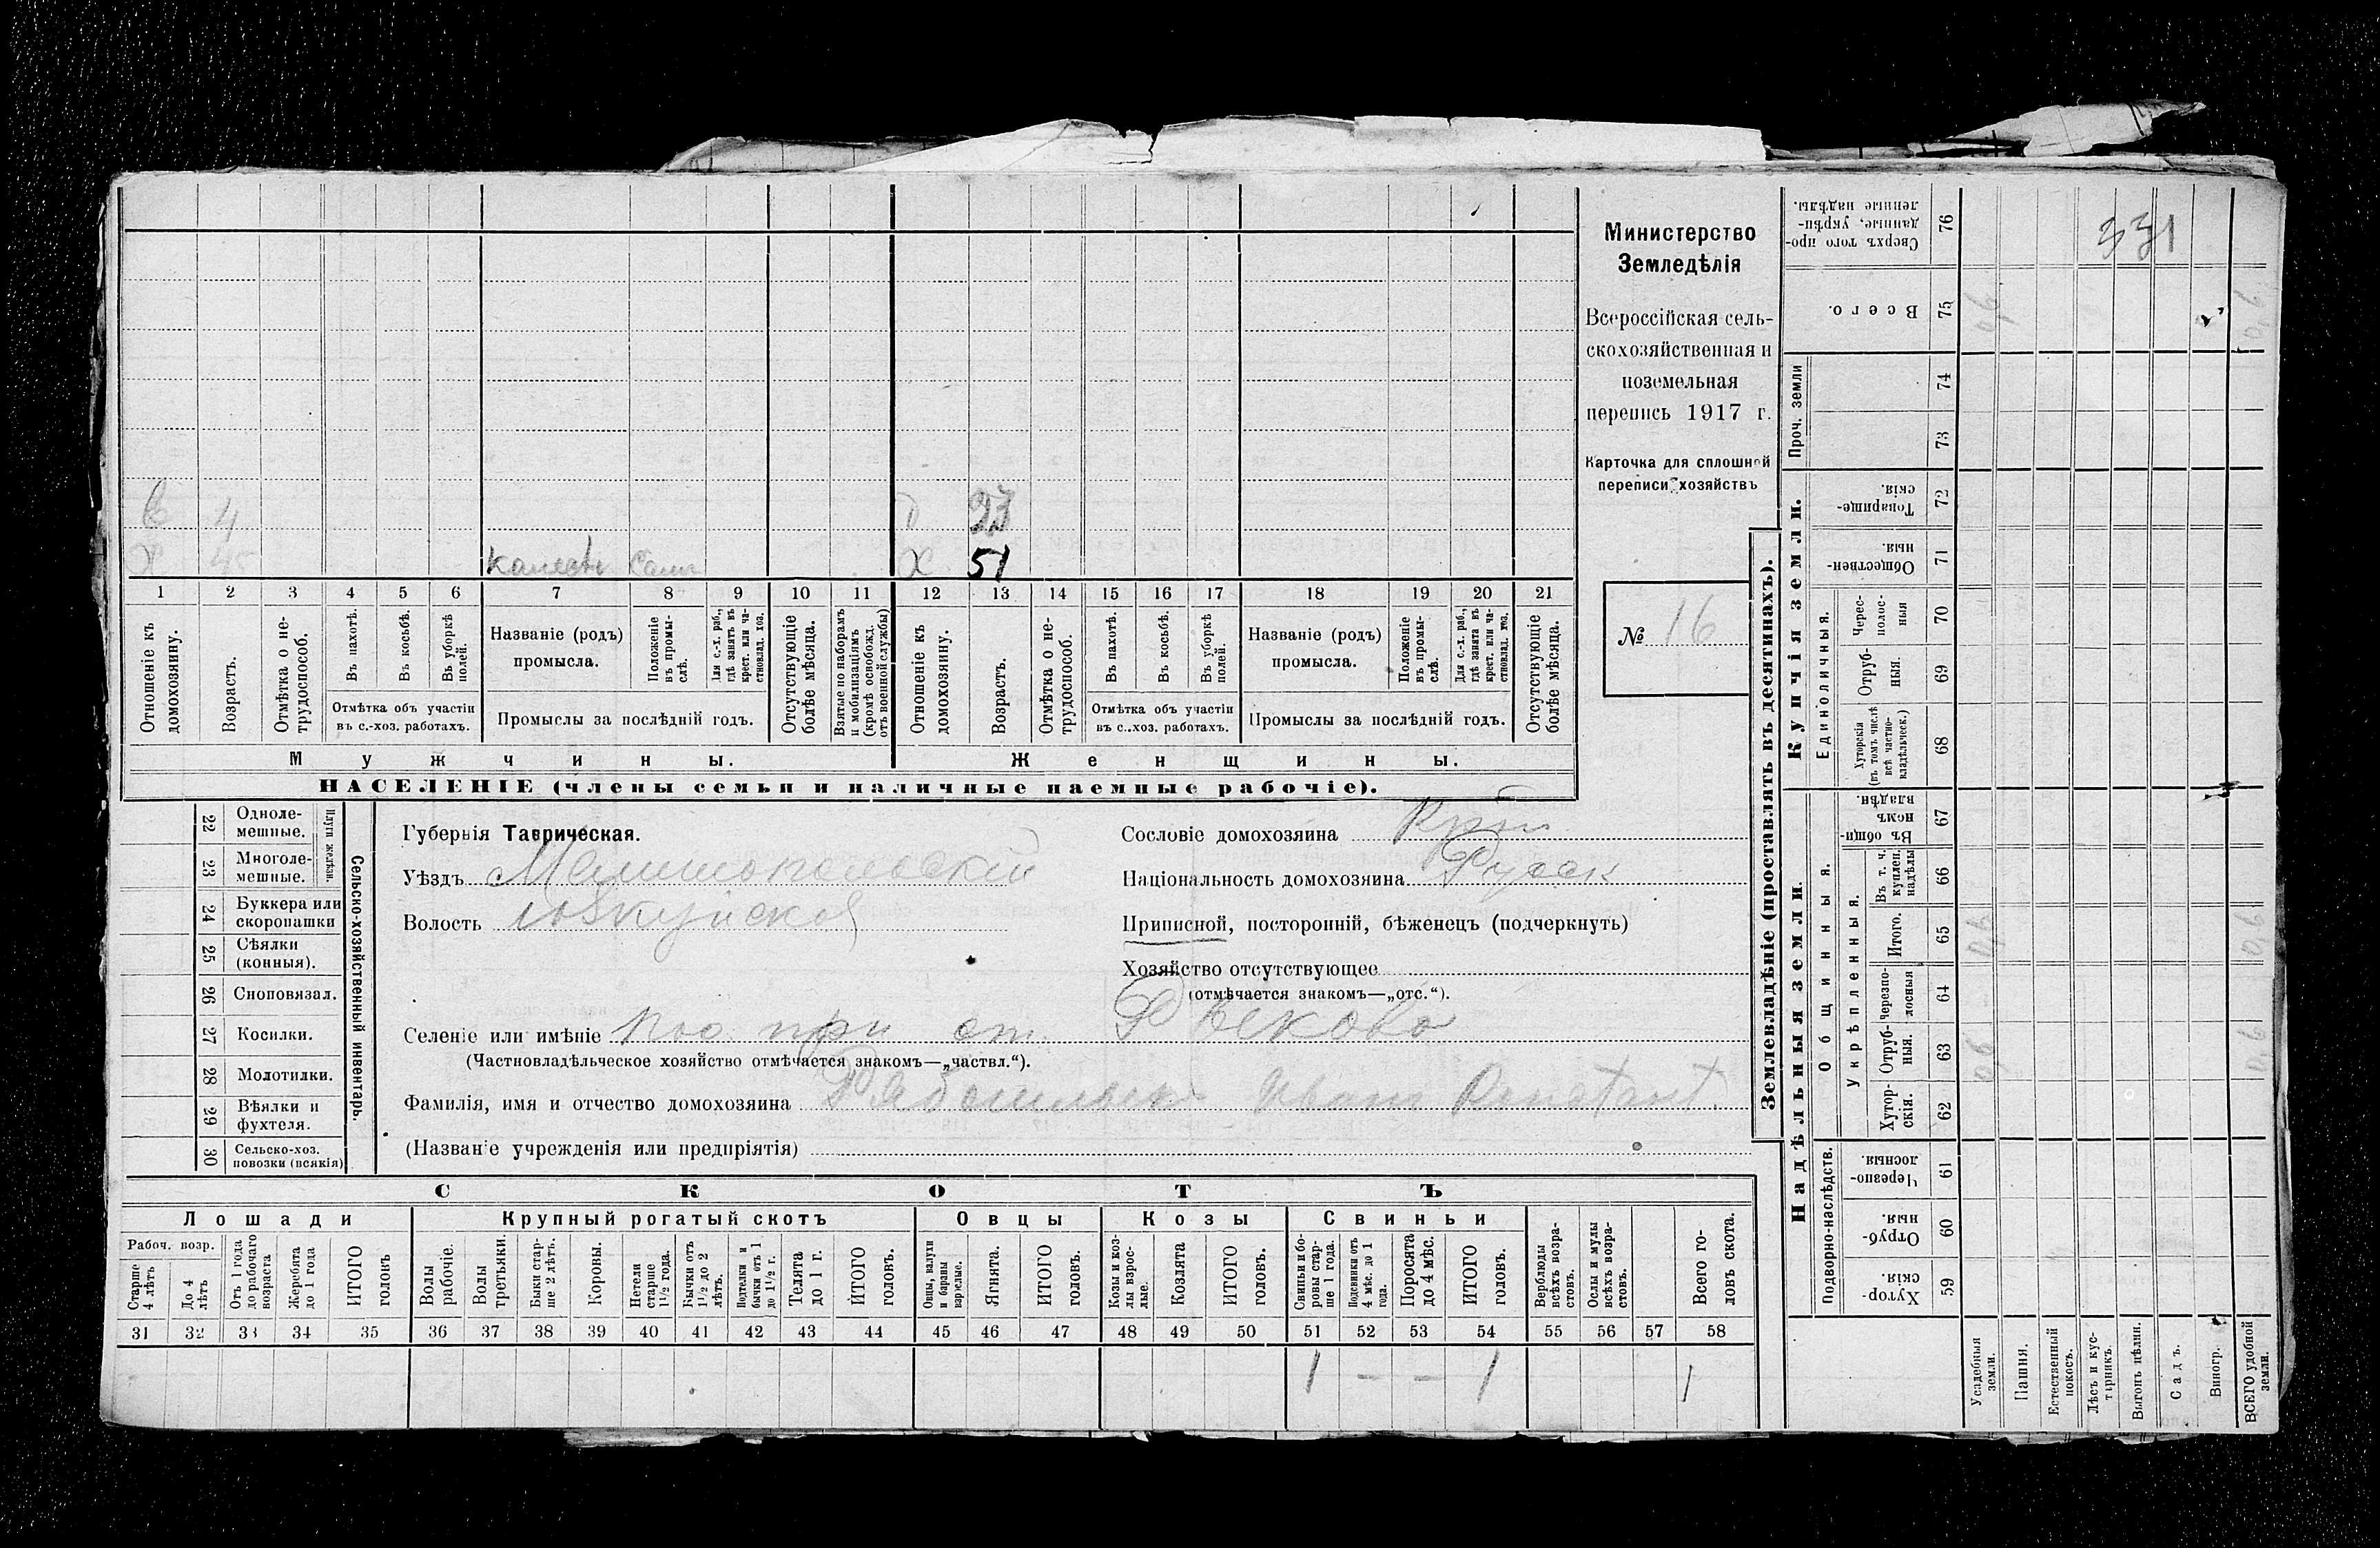 Министерство
Земледѣлія
Всероссійская сель-
скохозяйственная и
поземельная
перепись 1917 г.
Карточка для сплошной
переписи хозяйствъ
№ 16
4 23
Х 45 Х 51
1 2 3 4 5 6 7 8 9 10 11 12 13 14 15 16 17 18 19 20 21
Отношеніе къ домохозяину.
Возрастъ.
Отмѣтка о не-трудоспособ.
Въ пахотѣ.
Въ косьбѣ.
Въ уборкѣ полей.
Отмѣтка объ участіи
въ с.-хоз. работахъ.
Названіе (родъ)
промысла.
Положеніе въ промы-слѣ.
Для с.-х. раб., гдѣ занятъ въ крест. или ча-стновлад. хоз.
Промыслы за послѣдній годъ.
Отсутствующіе болѣе мѣсяца.
Взятые по наборамъ и мобилизаціямъ (кромѣ освобожд. отъ военной службы)
Отношеніе къ домохозяину.
Возрастъ.
Отмѣтка о не-трудоспособ.
Въ пахотѣ.
Въ косьбѣ.
Въ уборкѣ полей.
Отмѣтка объ участіи
въ с.-хоз. работахъ.
Названіе (родъ)
промысла.
Положеніе въ промы-слѣ.
Для с.-х. раб., гдѣ занята въ крест. или ча-стновлад. хоз.
Промыслы за послѣдній годъ.
Отсутствующіе болѣе мѣсяца.
Мужчины. Женщины.
НАСЕЛЕНІЕ (члены семьи и наличные наемные рабочіе).
22 Одноле-мешные.
23 Многоле-мешные.
Плуги желѣзн.
24 Буккера или скоропашки
25 Сѣялки (конныя).
26 Сноповязал.
27 Косилки.
28 Молотилки.
29 Вѣялки и фухтеля.
30 Сельско-хоз. повозки (всякія)
Сельско-хозяйственный инвентарь.
Губернія Таврическая.
Уѣздъ Мелитопольскій
Волость Юзкуйская
Селеніе или имѣніе пос. при ст. Рыково
(Частновладѣльческое хозяйство отмѣчается знакомъ—„частвл.“).
Фамилія, имя и отчество домохозяина Иванъ Констант.
(Названіе учрежденія или предпріятія)
Сословіе домохозяина
Національность домохозяина Русск
Приписной, посторонній, бѣженецъ (подчеркнуть)
Хозяйство отсутствующее
(отмѣчается знакомъ—„отс.“).
СКОТЪ
Лошади Крупный рогатый скотъ Овцы Козы Свиньи
Рабоч. возр.
Старше 4 лѣтъ
До 4 лѣтъ
Отъ 1 года до рабочаго возраста
Жеребята до 1 года
ИТОГО головъ
Волы рабочіе.
Волы третьяки.
Быки стар-ше 2 лѣтъ.
Коровы.
Нетели старше 1½ года.
Бычки отъ 1½ до 2 лѣтъ.
Подтелки и бычки отъ 1 до 1½ г.
Телята до 1 г.
ИТОГО головъ.
Овцы, валухи и бараны взрослые.
Ягнята.
ИТОГО головъ.
Козы и коз-лы взрос-лые.
Козлята
ИТОГО головъ.
Свиньи и бо-ровы стар-ше 1 года.
Подсвинки отъ 4 мѣс. до 1 года.
Поросята до 4 мѣс.
ИТОГО головъ.
Верблюды всѣхъ возра-стовъ.
Ослы и мулы всѣхъ возра-стовъ.
Всего го-ловъ скота.
31 32 33 34 35 36 37 38 39 40 41 42 43 44 45 46 47 48 49 50 51 52 53 54 55 56 57 58
1 — — 1 1
Землевладѣніе (проставлять въ десятинахъ).
Надѣльныя земли. Купчія земли. Проч. земли
Подворно-наслѣдств. Общинныя. Укрѣпленныя. Единоличныя.
Сверхъ того про-данные, укрѣп-ленные надѣлы. 76
331
Всего. 75
0,6 0,6
74
73
Товарище-скія. 72
Обществен-ныя. 71
Черес-полос-ныя 70
Отруб-ныя. 69
Хуторскія (въ томъ числѣ всѣ частно-владѣльческ.) 68
Въ общин-номъ владѣн. 67
Въ т. ч. куплен. надѣлы 66
Итого. 65
0,6 0,6
черезпо-лосныя 64
Отруб-ныя. 63
0,6 0,6
Хутор-скія. 62
Черезпо-лосныя. 61
Отруб-ныя. 60
Хутор-скія. 59
Усадебныя земли.
Пашня.
Естественный покосъ.
Лѣсъ и кус-тарникъ.
Выгонъ цѣлин.
Садъ.
Виногр.
ВСЕГО удобной земли.